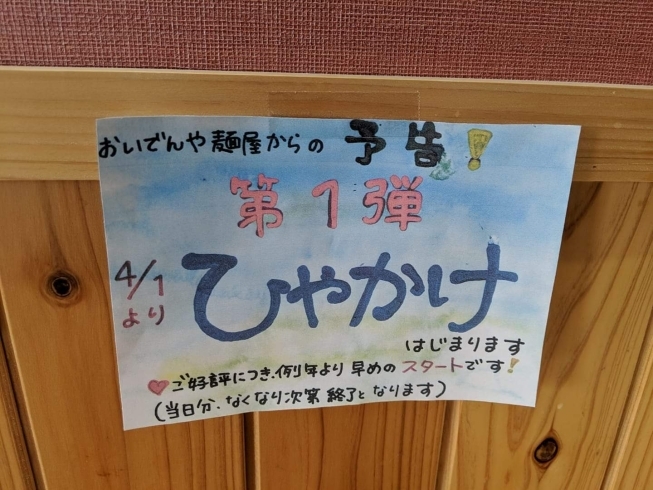 おいでんや麺屋からの 予告!
第1弾
4/1
より
ひやかけ
はじまります
♥ご好評につき、例年より早めのスタートです!
(当日分、なくなり次第 終了となります)